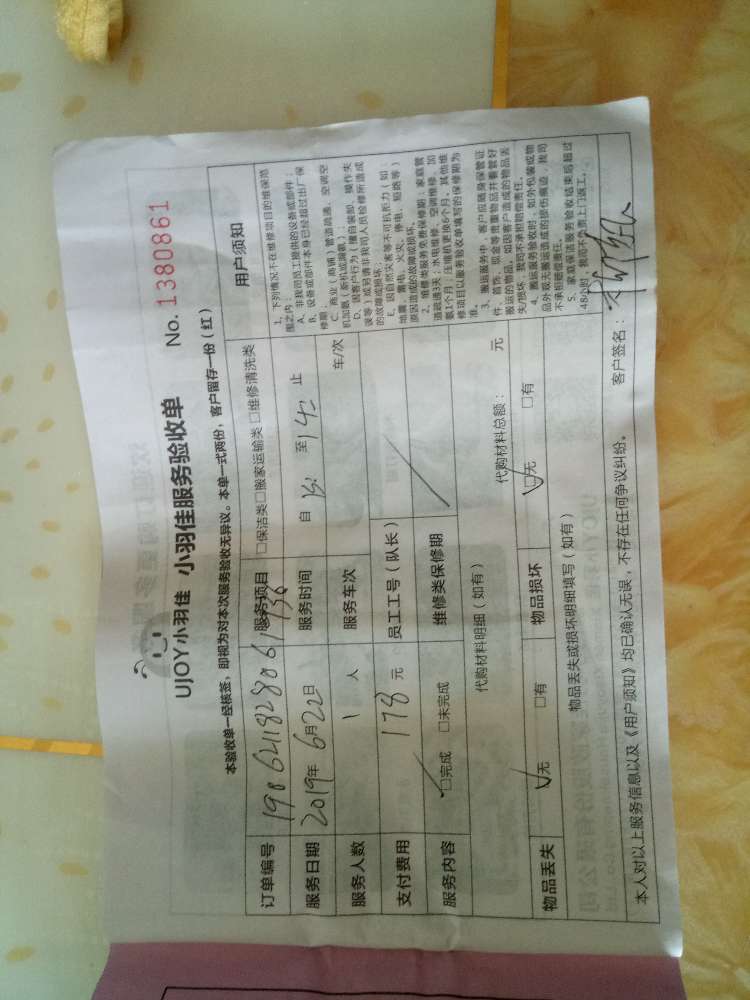 UJOY小羽佳 小羽佳服务验收单 No. 1380861
本验收单一经核签，即视为对本次服务验收无异议。本单一式两份，客户留存一份（红）
订单编号 服务项目 □保洁类□搬家运输类□维修清洗类
服务日期 2019年6月22日 服务时间 自 至 止
服务人数 1 人 服务车次 车/次
支付费用 178 元 员工工号（队长）
服务内容 □完成 □未完成 维修类保修期
代购材料明细（如有） 代购材料总额： 元
物品丢失 □无 □有 物品损坏 □无 □有
物品丢失或损坏明细填写（如有）
用户须知
1、下列情况不在维修项目的维保范
围之内：
A、非我司员工提供的设备或部件；
B、设备或部件本身已经超过出厂保
修期；
C、商业（商铺）管道疏通、空调空
机加氨（新机或漏氨）；
D、因客户行为（擅自装卸、操作失
误等）或另请非我司人员检修所造成
的故障或损坏；
E、因自然灾害等不可抗拒力（如：
地震、雷电、火灾、停电、短路等）
原因造成的故障或损坏。
2、维修类服务免费保修期：家庭管
道疏通3天；水电维修、空调维修、加
氨1个月；压缩机更换6个月，其他维
修项目以服务验收单填写的保修期为
准。
3、搬运服务中，客户应随身保管证
件、首饰、现金等贵重物品并看管好
搬运的物品，如因客户造成的物品丢
失/损坏，我司不承担赔偿责任。
搬运服务验收时，如外包装或物
品外观无搬运造成的损伤痕迹，我司
不承担赔偿责任。
5、家庭保洁服务验收结束后超过
48小时，我司不负责上门返工。
本人对以上服务信息以及《用户须知》均已确认无误，不存在任何争议纠纷。 客户签名：